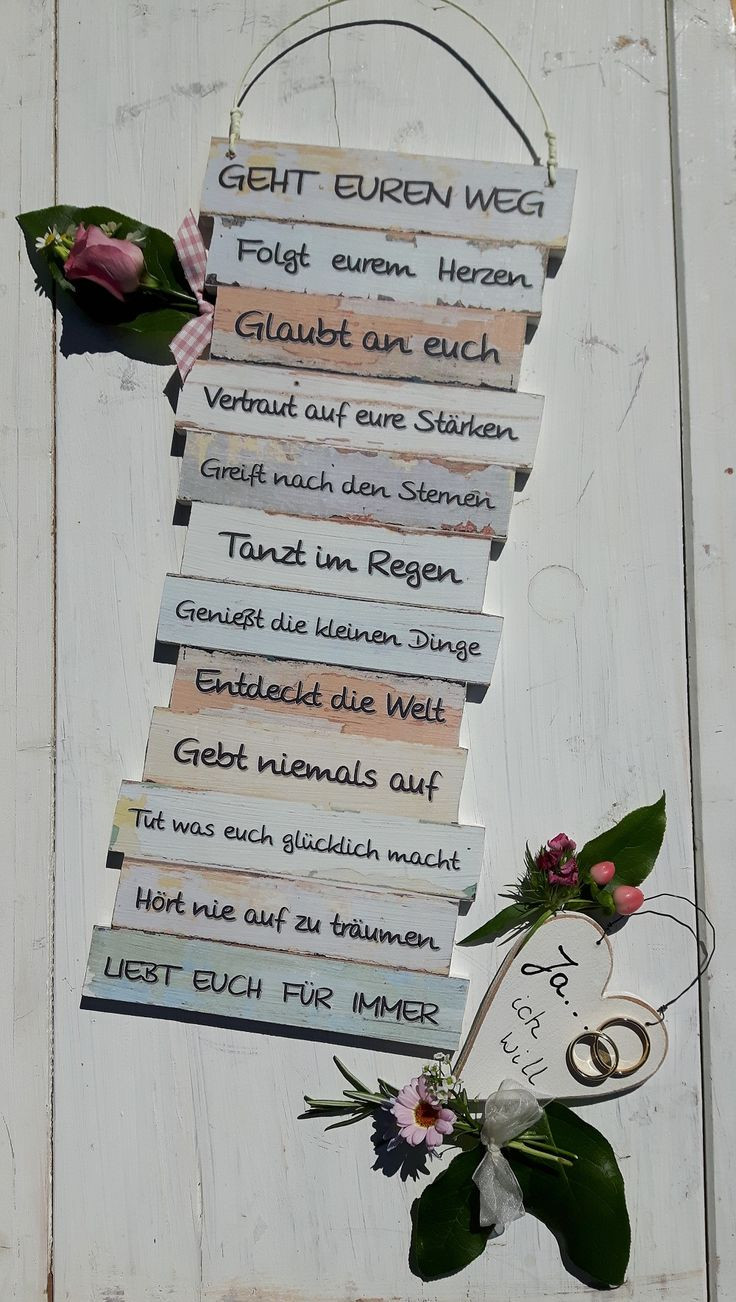 GEHT EUREN WEG
Folgt eurem Herzen
Glaubt an euch
Vertraut auf eure Stärken
Greift nach den Sternen
Tanzt im Regen
Genießt die kleinen Dinge
Entdeckt die Welt
Gebt niemals auf
Tut was euch glücklich macht
Hört nie auf zu träumen
LIEBT EUCH FÜR IMMER
Ja...
ich
will